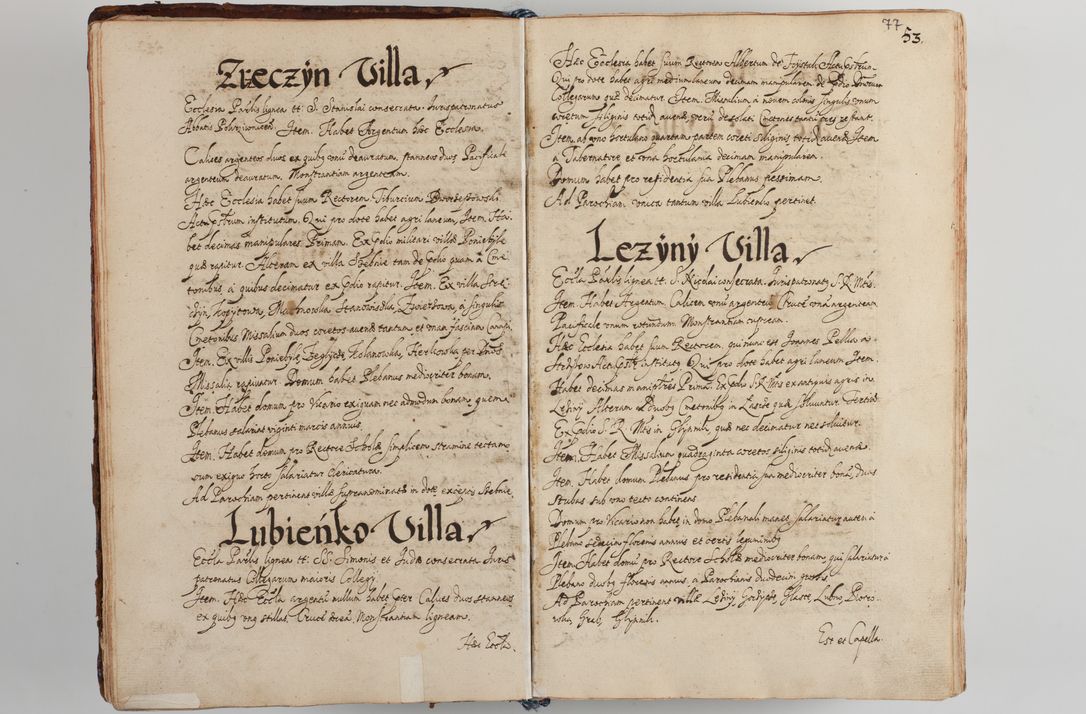 Zrzeczyn Villa
Ecclesia Parlis lignea tt: S. Stanislai consecrata Iurispatronatus
Abbatis Item. Habet Argentum hæc Ecclesia.
Calices argenteos duos ex quibg vnũ deauratum, stanneos duos Pacificale
argenteum deauratum, Monstrantiam argenteam.
Hæc Ecclesia habet suum Rectorem Tiburcium
institutum. Qui pro dote habet agri laneum, Item. Ha-
bet decimas manipulares Primam. Ex pdio militari villæ Poniebyle
quæ rapitur. Alteram ex villa Szebnie tam de pdio quam à Cme-
tonibus, à quibus decimatur ex pdio rapitur. Item. Ex villa
à singulis
Cmetonibus Missalium duos coretos auenæ tantum, et vnam fasciam
Item. Ex villis Poniebyle,
Missalia rapiuntur. Domum habet Plebanus mediocriter bonam.
Item. Habet domum pro Vicario exiguam nec admodum bonam, quem
Plebanus salariat viginti marcis annuis.
Item. Habet domum pro Rectore Scholæ simplicem, stramine tectam
cum exiguo horto salariatur Clericatura.
Ad Parochiam pertinent villæ supranominatæ in dote exceptis Szebnie
Lubieńko Villa
Eccła Parlis lignea tt: SS. Simonis et Iudæ consecrata Iuris
patronatus Collegarum maioris Collegy.
Item. Hæc Eccła argentũ nullum habet pter Calices duos stanneos
ex quibg vng stillat, Crucẽ æreã, Monstrantiam ligneam.
Hæc Eccła.
77
53.
Hæc Ecclesia habet suum Rectorem Albertum de
Qui pro dote habet agri medium laneum decimam manipularem de pdio
Collegarum quæ decimatur. Item. Missalium à nouem colonis singulis vnum
coretum siliginis totid. auenæ, verũ desolati Cmetones tantũ tres restant.
Item. ab vno hortulano quartam partem coreti siliginis totid auenæ Item
à Tabernatore et vna hortulania decimam manipularem.
Domum habet pro residentia sua Plebanus pessimam.
Ad Parochiam vnica tantum villa Lubienko pertinet.
Lezyny Villa
Eccła Parlis lignea tt: S. Nicolai consecrata. Iurispatronatg S. R. Mtis.
Item. Habet Argentum, Calicem vnũ argenteũ, Crucẽ vnã argenteam
Pacificale vnum rotundum Monstrantiam cupream.
Hæc Ecclesia habet suum Rectorem, qui nunc est Ioannes Pellio
institutg Qui pro dote habet agri laneum Item.
Habet decimas man: tres Prima: Ex pdio S. R. Mtis ex antiquis agris in
Leziny Alteram à Duobg Cmetonibg in quæ soluuntur. Tertiã
Ex pdio S. R. Mtis in Glynnik, quæ nec decimatur nec soluitur.
Item. Habet Missalium quadraginta coretos siliginis totid. auenæ.
Item. Habet domum Plebanus pro residentia sua mediocriter bonã, duas
stubas sub vno tecto continens.
Domum pro Vicario non habet in domo Plebanali manet, salariatur autem à
Plebano sedecim florenis annuis et certis leguminibg.
Item Habet domũ pro Rectore Scholæ mediocriter bonam, qui salariatur à
Plebano duobg florenis annuis, à Parochianis duodecim grossis.
Ad Parochiam pertinent villæ Leziny,
Glynnik.
Est et Capella.